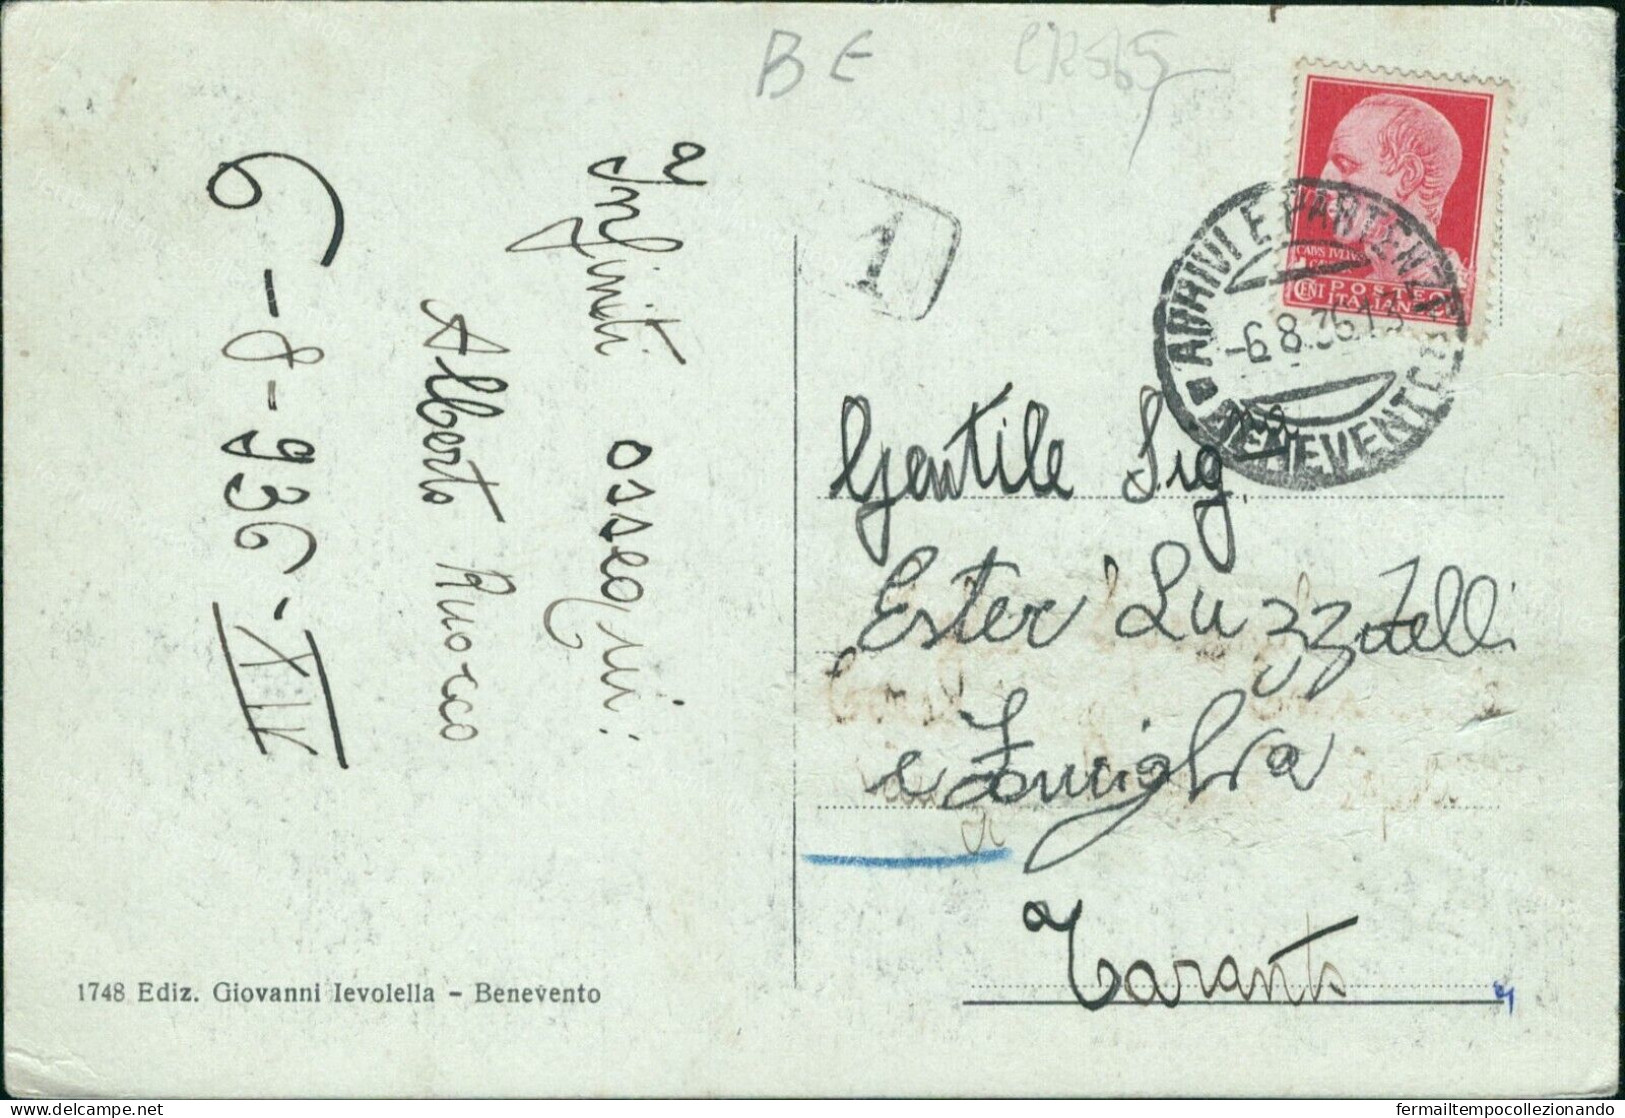 BE
Infiniti ossequi:
Alberto Ruocco
6-8-936-XIV
1748 Ediz. Giovanni Ievolella - Benevento
1
ARRIVI E PARTENZE
-6.8.36.13
BENEVENTO
POSTE
ITALIANE
CENT
Gentile Sig.na
Ester Luzzatelli
e Famiglia
Taranto
fermailtempocollezionando